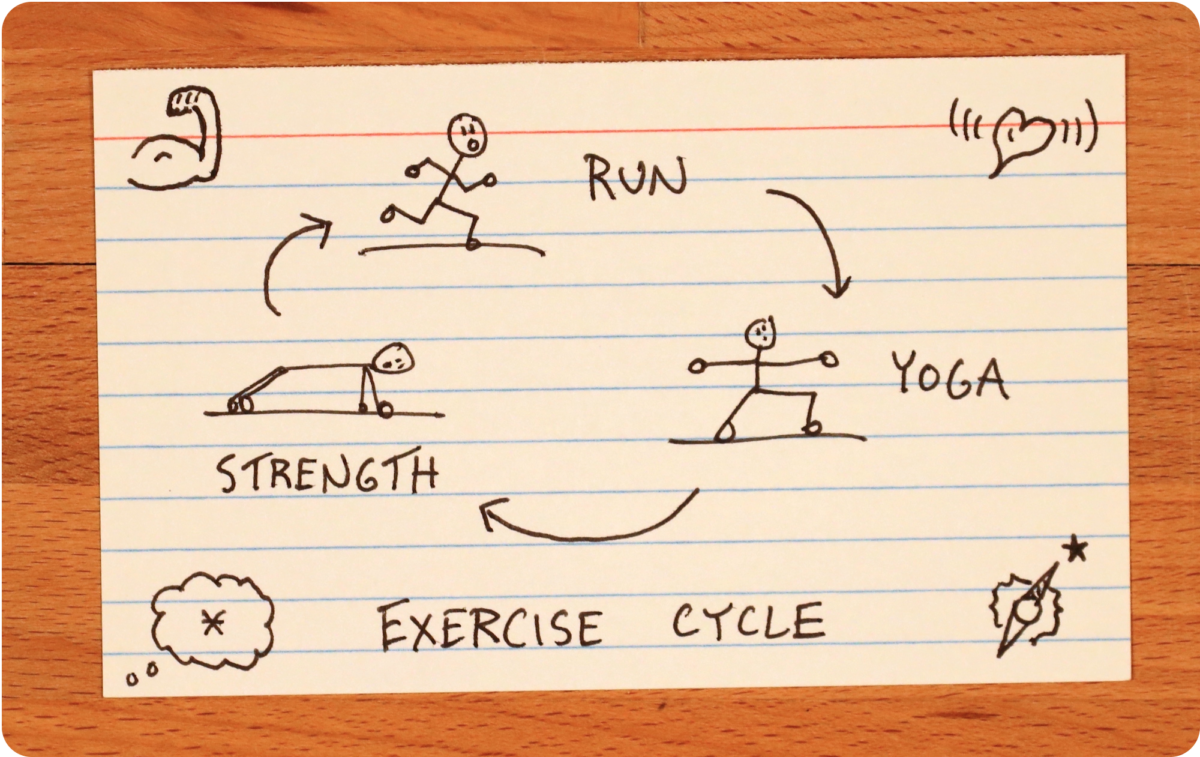 RUN
YOGA
STRENGTH
EXERCISE CYCLE